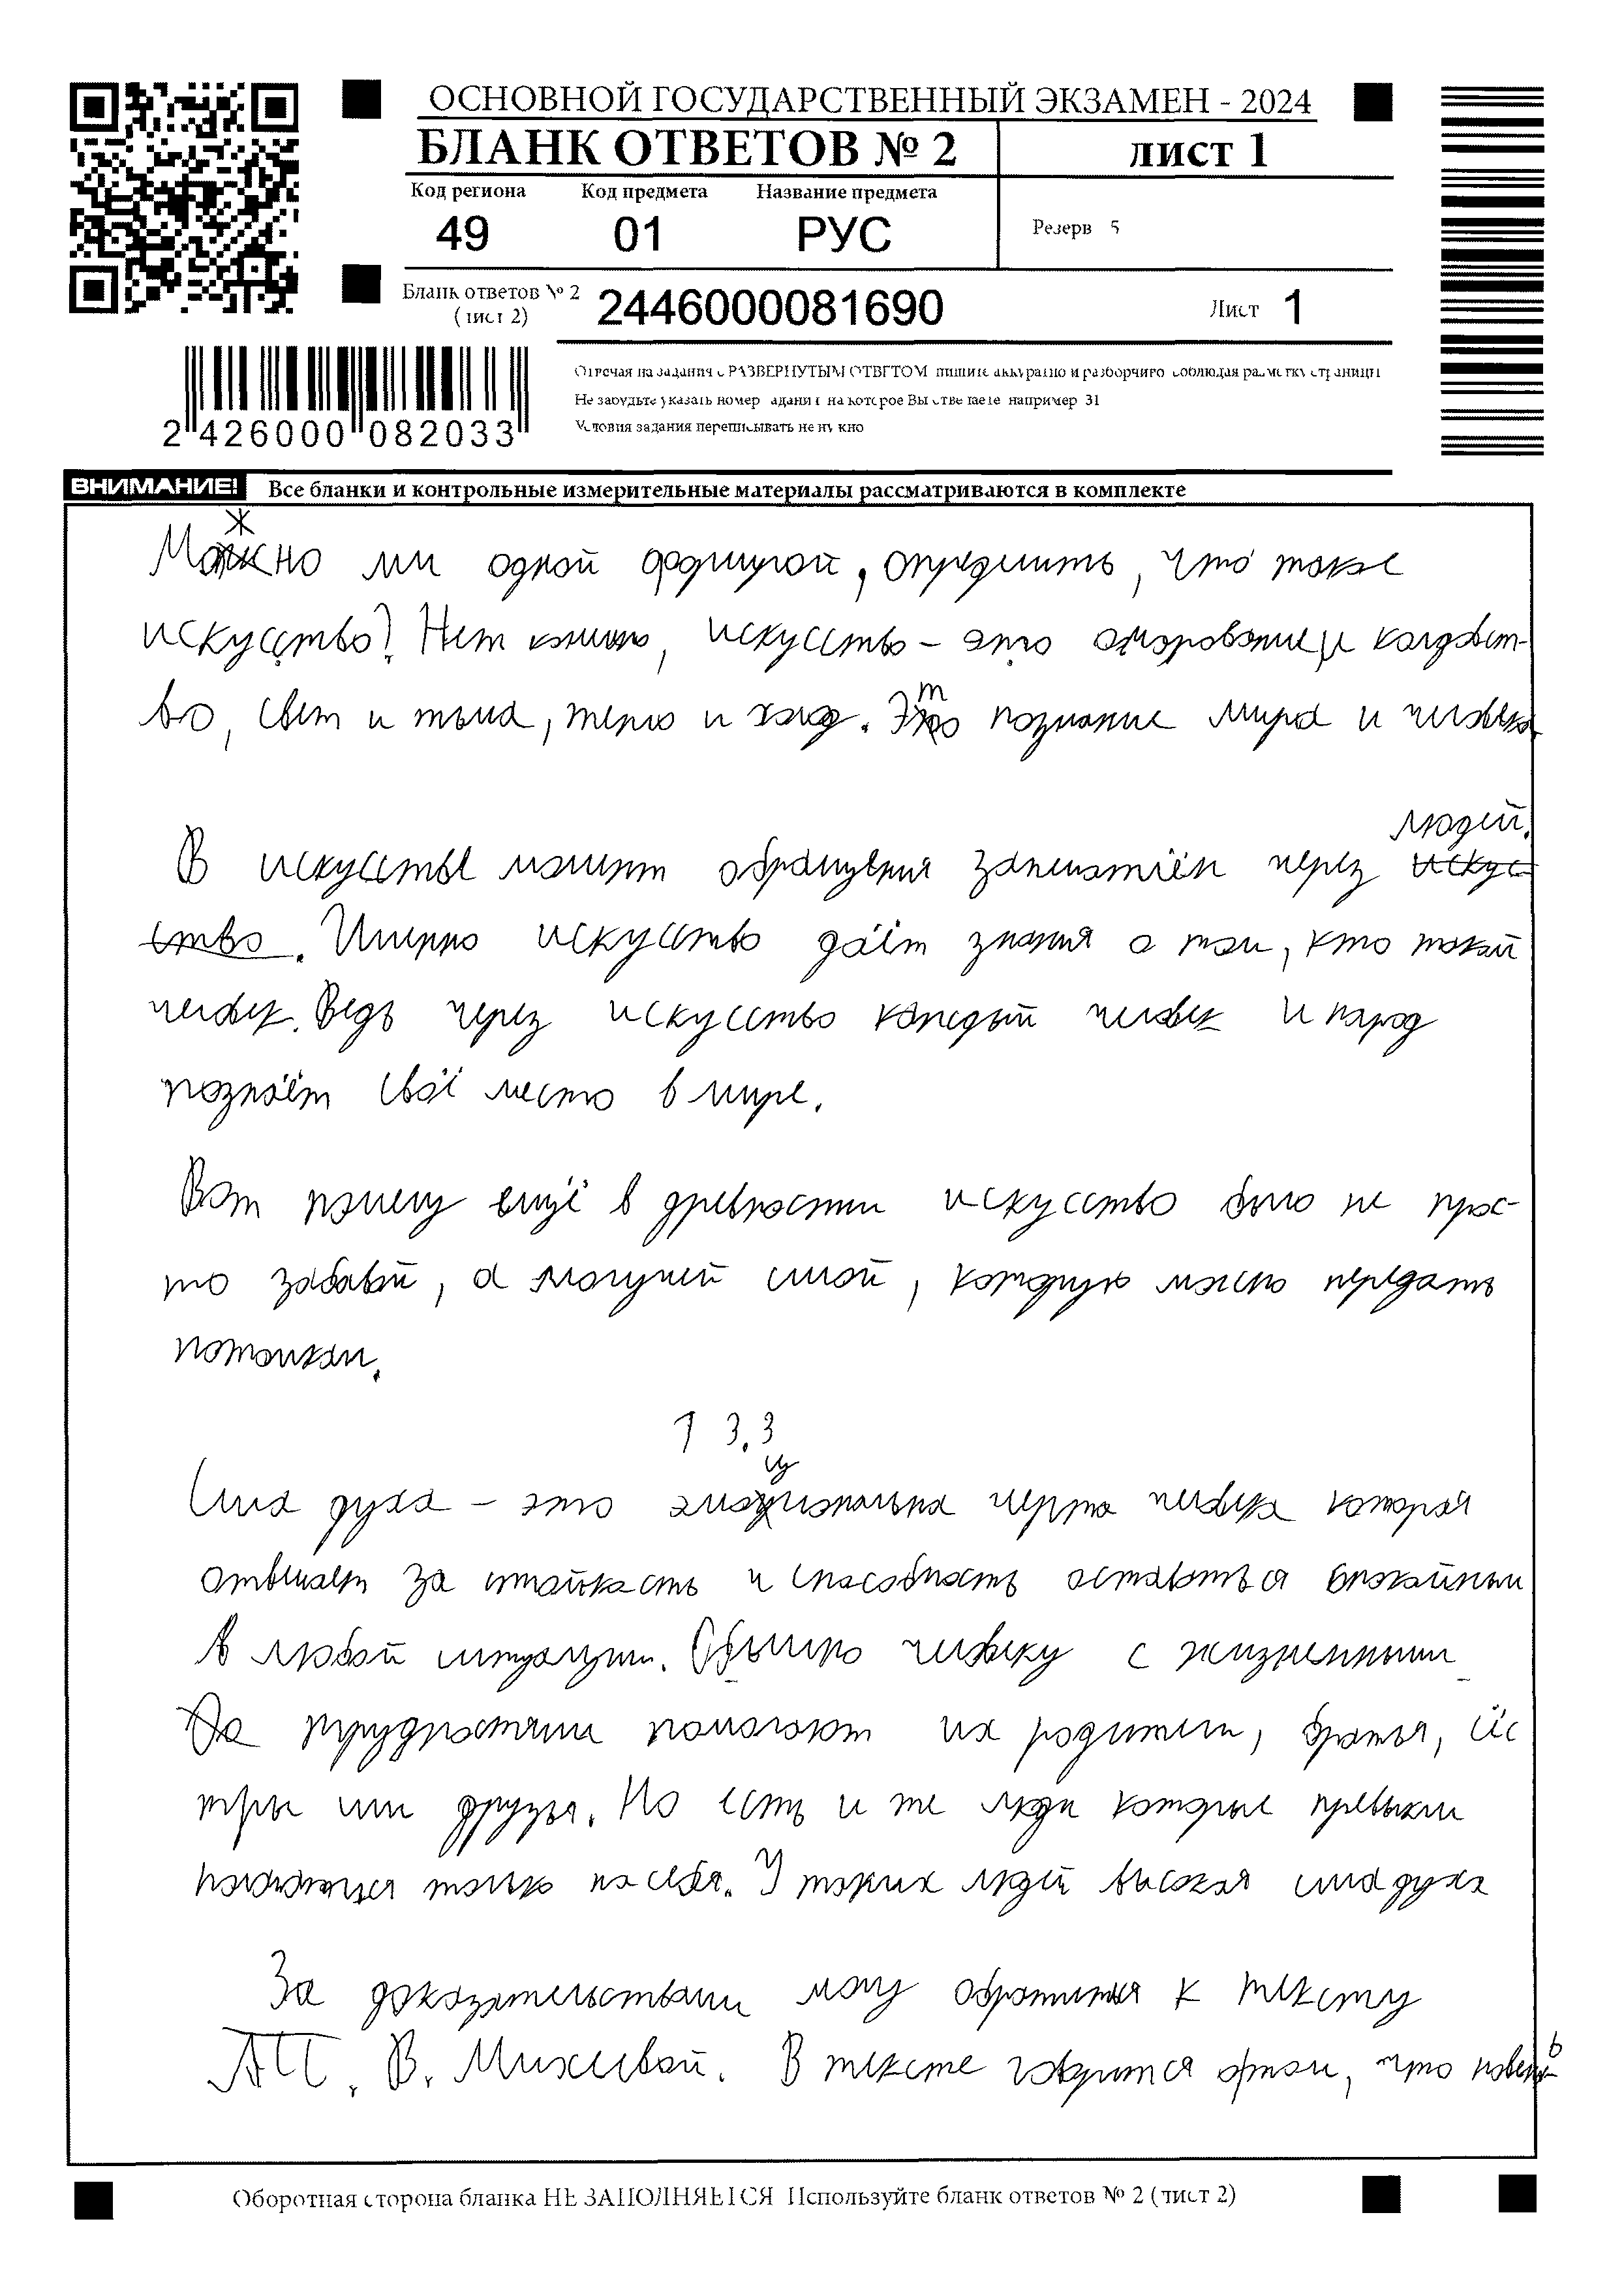 ОСНОВНОЙ ГОСУДАРСТВЕННЫЙ ЭКЗАМЕН - 2024
БЛАНК ОТВЕТОВ № 2
ЛИСТ 1
Код региона Код предмета Название предмета
49 01 РУС
Резерв 5
Бланк ответов № 2
(лист 2)
2446000081690
Лист 1
2 426000 082033
Отвечая на задания с РАЗВЕРНУТЫМ ОТВЕТОМ пишите аккуратно и разборчиво соблюдая разметку страницы
Не забудьте указать номер задания на которое Вы отвечаете например 31
Условия задания переписывать не нужно
ВНИМАНИЕ! Все бланки и контрольные измерительные материалы рассматриваются в комплекте
Можно ли одной формулой, определить, что такое
искусство? Нет конечно, искусство - это очарование и колдовст-
во, свет и тьма, тепло и холод. Это познание мира и человека
В искусстве момент обращения запечатлён через людей.
Именно искусство даёт знания о том, кто такой
человек. Ведь через искусство каждый человек и народ
познаёт своё место в мире.
Вот почему ещё в древности искусство было не прос-
то забавой, а могучей силой, которую можно передать
потомкам.
13.3
Сила духа - это эмоциональная черта человека которая
отвечает за стойкость и способность оставаться спокойным
в любой ситуации. Обычно человеку с жизненными
трудностями помогают их родители, братья, сёс
тры или друзья. Но есть и те люди которые превыкли
полагаться только на себя. У таких людей высокая сила духа
За доказательствами могу обратиться к тексту
В. Михеевой. В тексте говорится о том, что
Оборотная сторона бланка НЕ ЗАПОЛНЯЕТСЯ Используйте бланк ответов № 2 (лист 2)